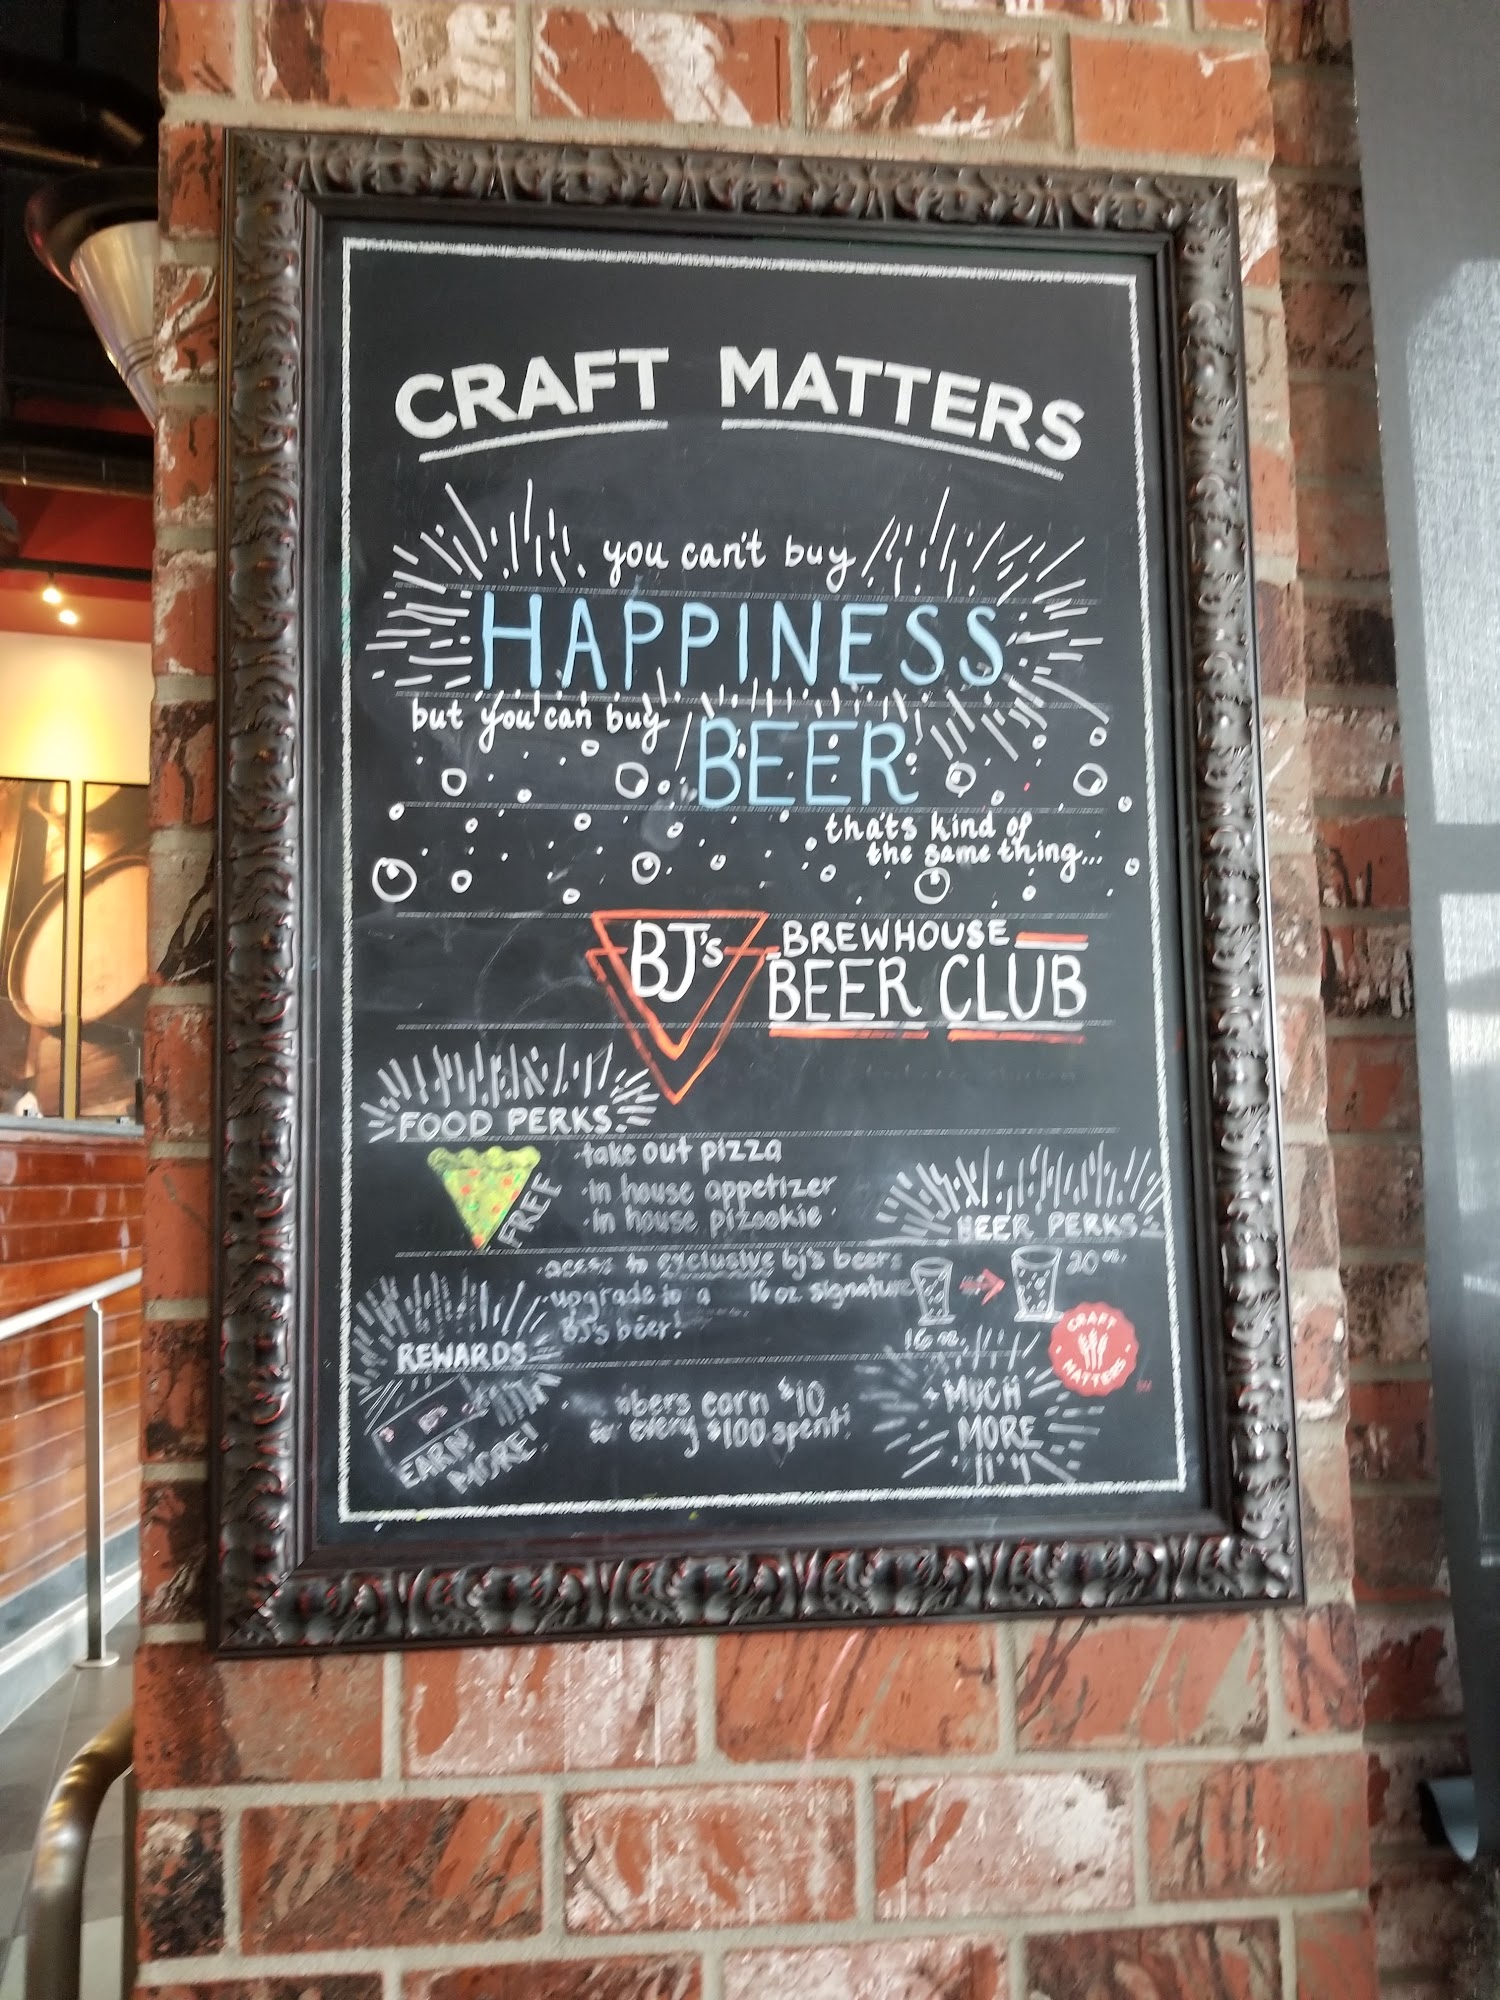 CRAFT MATTERS
you can't buy
HAPPINESS
but you can buy
BEER
that's kind of
the same thing...
BJ's BREWHOUSE
BEER CLUB
FOOD PERKS
FREE
·take out pizza
·in house appetizer
·in house pizookie
BEER PERKS
·acess to exclusive bj's beers
·upgrade to a 16 oz. signature
BJ's beer!
16 oz.
20 oz.
CRAFT MATTERS
REWARDS
EARN
MORE!
earn $10
every $100 spent!
+ MUCH
MORE